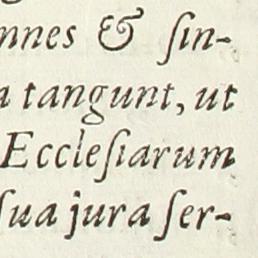 nnes & ſin-
a tangunt, ut
Eccleſiarum
ſua jura ſer-